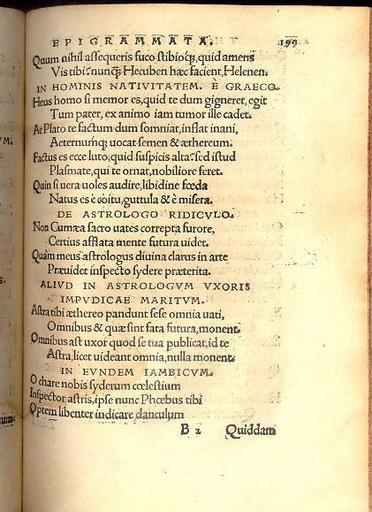 EPIGRAMMATA. 199
Quum nihil assequeris fuco stibioq;, quid amens
Vis tibi? nunq̃ Hecuben hæc facient, Helenen.
IN HOMINIS NATIVITATEM. È GRAECO.
Heus homo si memor es, quid te dum gigneret, egit
Tum pater, ex animo iam tumor ille cadet.
At Plato te factum dum somniat, inflat inani,
Aeternumq; uocat semen & æthereum.
Factus es ecce luto, quid suspicis alta? sed istud
Plasmate, qui te ornat, nobiliore feret.
Quin si uera uoles audire, libidine fœda
Natus es è coitu, guttula & è misera.
DE ASTROLOGO RIDICVLO.
Non Cumæa sacro uates correpta furore,
Certius afflata mente futura uidet.
Quàm meus astrologus diuina darus in arte
Præuidet inspecto sydere præterita.
ALIVD IN ASTROLOGVM VXORIS
IMPVDICAE MARITVM.
Astra tibi æthereo pandunt sese omnia uati,
Omnibus & quæ sint fata futura, monent.
Omnibus ast uxor quod se tua publicat, id te
Astra, licet uideant omnia, nulla monent.
IN EVNDEM IAMBICVM.
O chare nobis syderum cœlestium
Inspector astris, ipse nunc Phœbus tibi
Optem libenter indicare clanculum
B 2 Quiddam